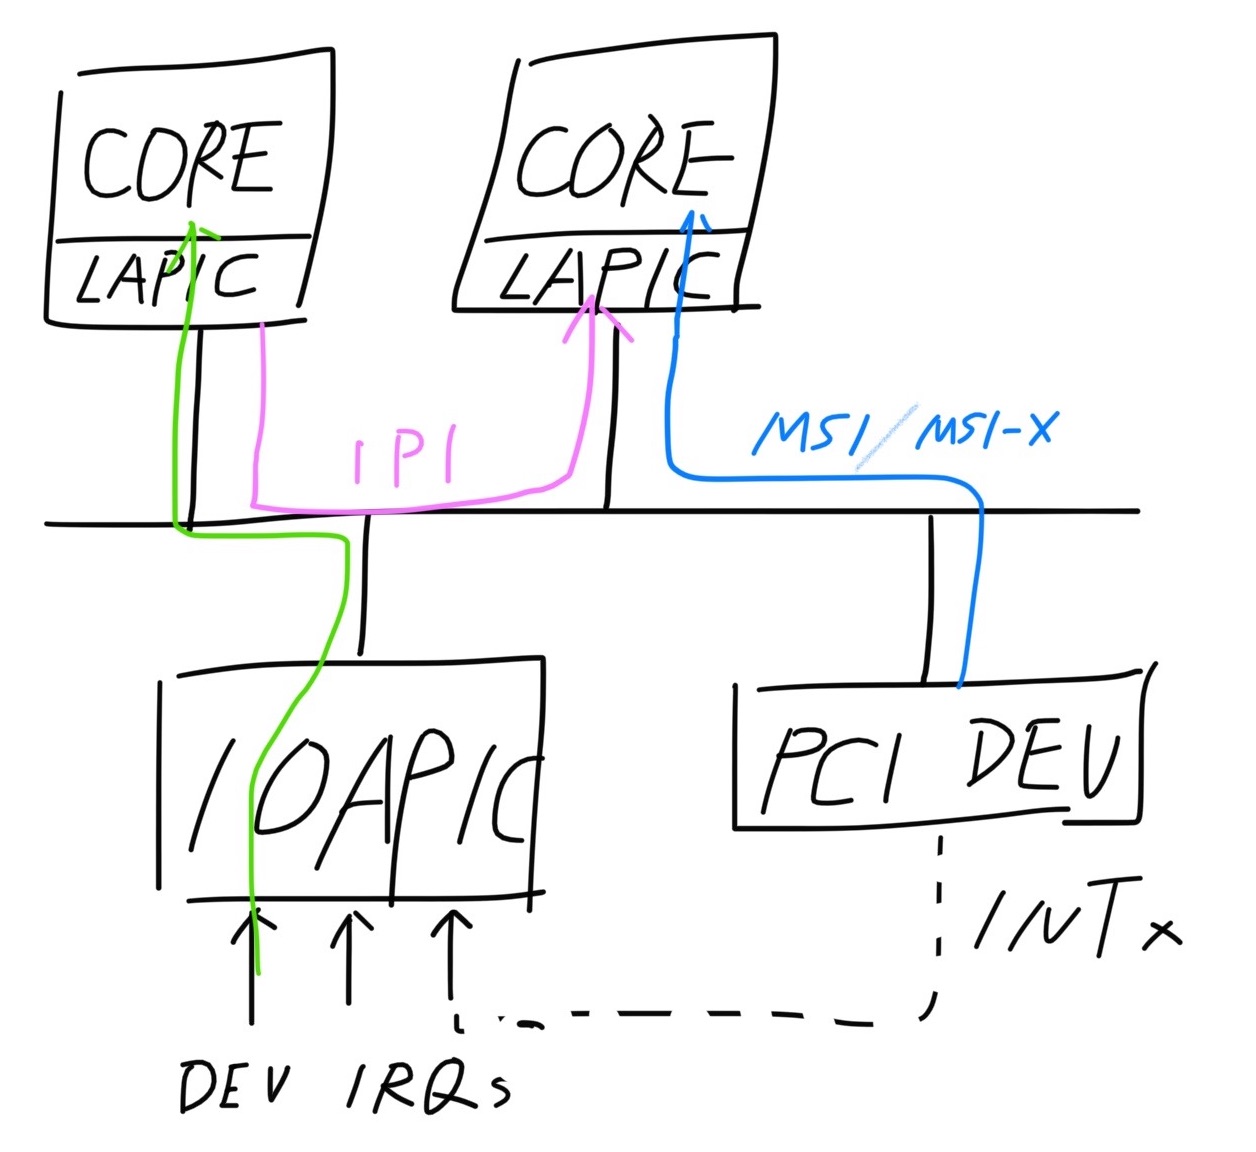 CORE
LAPIC
CORE
LAPIC
IPI
MSI/MSI-X
IOAPIC
PCI DEV
INTx
DEV IRQs